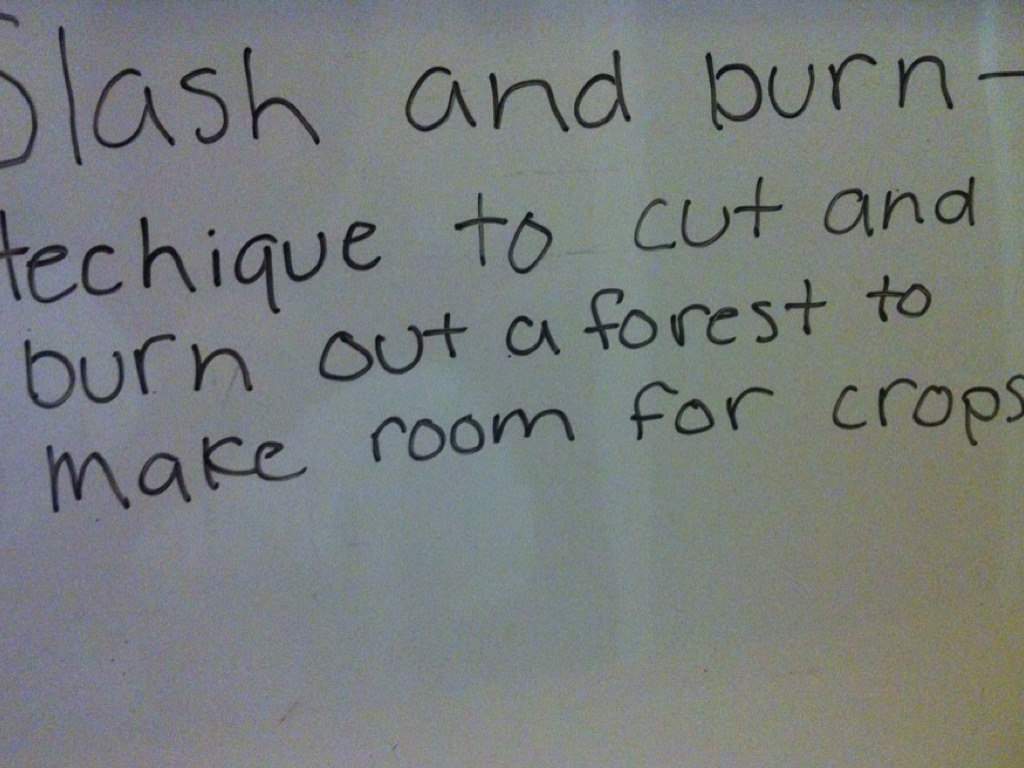 Slash and burn-
techique to cut and
burn out a forest to
make room for crops